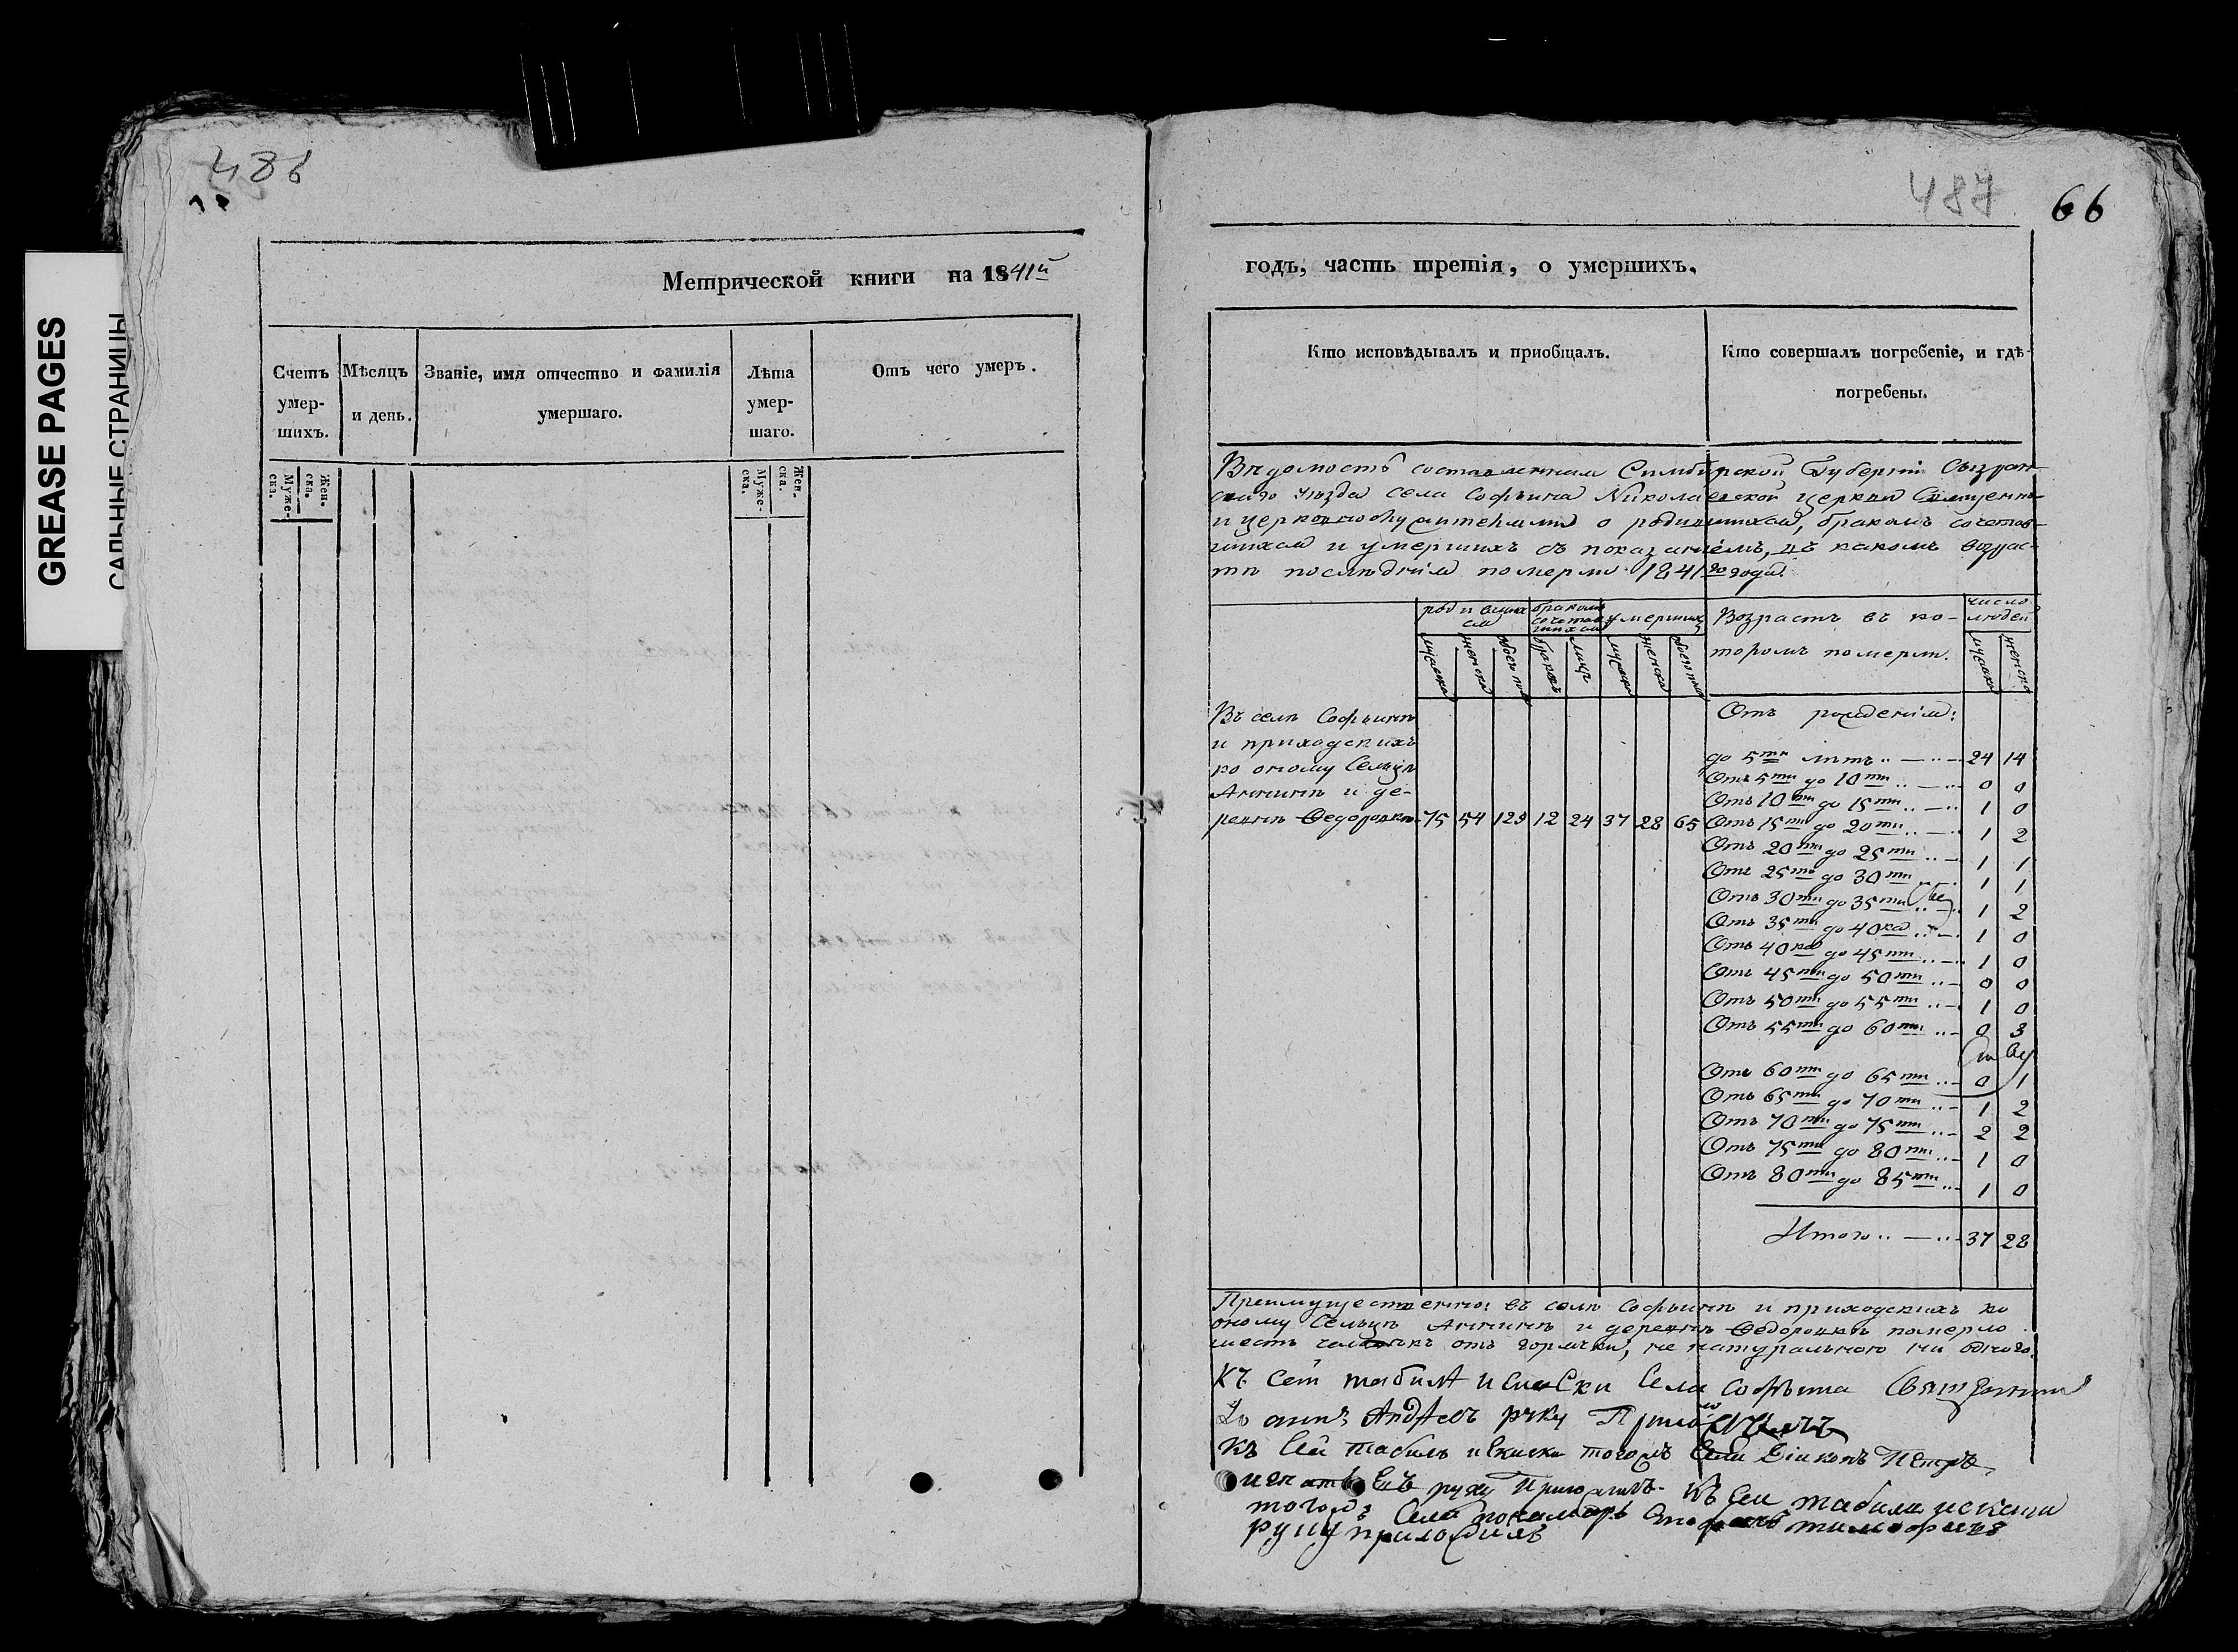 GREASE PAGES
САЛЬНЫЕ СТРАНИЦЫ
486
Метрической книги на 1841й
Счетъ умер-шихъ.
Мѣсяцъ и день.
Званіе, имя отчество и фамилія умершаго.
Лѣта умер-шаго.
Отъ чего умеръ.
Муже-ска.
Жен-ска.
Муже-ска.
Жен-ска.
487
66
годъ, часть третія, о умершихъ.
Кто исповѣдывалъ и приобщалъ.
Кто совершалъ погребеніе, и гдѣ погребены.
Вѣдомость составленная Симбирской Губерніи Сызран-
скаго уѣзда села Софьина Николаевской церкви Священно-
и церковнослужителями о родившихся, бракомъ сочетав-
шихся и умершихъ съ показаніемъ, въ какомъ возрас-
тѣ послѣднія померли 1841го года.
родившихся
бракомъ сочетавшихся
умершихъ
Возрастъ въ ко-
торомъ померли.
число людей
мужеска
женска
обоего пола
браковъ
лицъ
мужеска
женска
обоего пола
мужеска
женска
Въ селѣ Софьинѣ
и приходскихъ
ко оному Сельцѣ
Аннинѣ и де-
ревнѣ Ѳедоровкѣ 75 54 129 12 24 37 28 65
Отъ рожденія:
до 5ти лѣтъ 24 14
Отъ 5ти до 10ти 0 0
Отъ 10ти до 15ти 1 0
Отъ 15ти до 20ти 1 2
Отъ 20ти до 25ти 1 1
Отъ 25ти до 30ти 1 1
Отъ 30ти до 35ти 1 2
Отъ 35ти до 40ка 1 0
Отъ 40ка до 45ти 1 0
Отъ 45ти до 50ти 0 0
Отъ 50ти до 55ти 1 0
Отъ 55ти до 60ти 0 3
Отъ 60ти до 65ти 0 1
Отъ 65ти до 70ти 1 2
Отъ 70ти до 75ти 2 2
Отъ 75ти до 80ти 1 0
Отъ 80ти до 85ти 1 0
Итого 37 28
Преимущественно: въ селѣ Софьинѣ и приходскихъ ко
оному Сельцѣ Аннинѣ и деревнѣ Ѳедоровкѣ померло
шесть человѣкъ отъ горячки, не натурально ни одного.
Къ сей табили и Села Софьина Священник
руку Приложилъ
Къ сей табиль тогожъ Села Діаконъ Петръ
руку Приложилъ. Къ сей табили
тогожъ Села пономарь
руку приложилъ